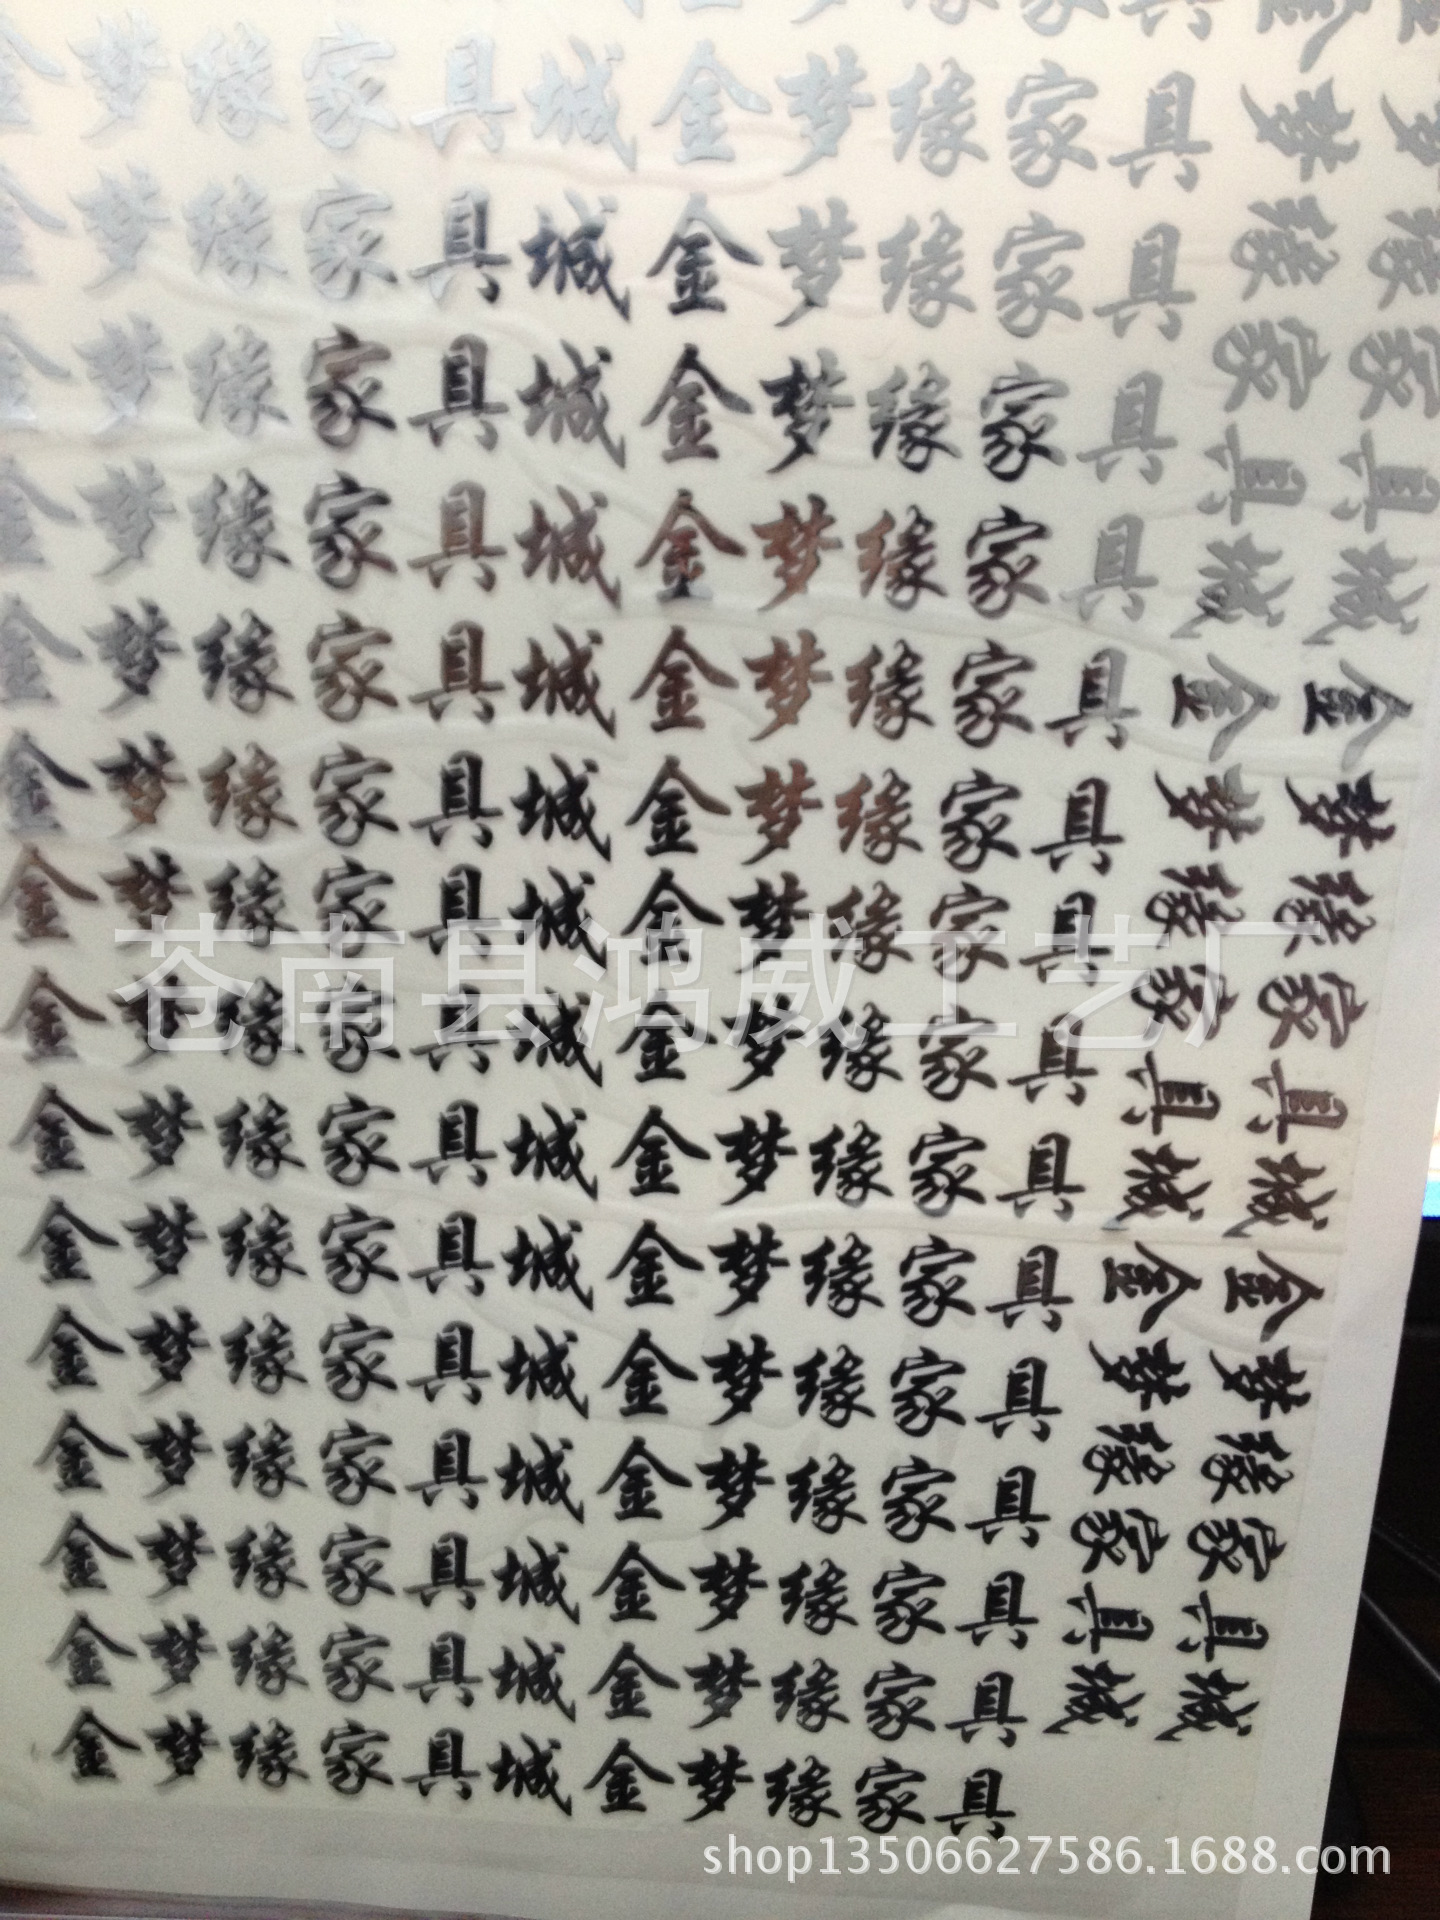 金梦缘家具城金梦缘家具
金梦缘家具城金梦缘家具
金梦缘家具城金梦缘家具
金梦缘家具城金梦缘家具
金梦缘家具城金梦缘家具
金梦缘家具城金梦缘家具
金梦缘家具城金梦缘家具
金梦缘家具城金梦缘家具
金梦缘家具城金梦缘家具
金梦缘家具城金梦缘家具
金梦缘家具城金梦缘家具
金梦缘家具城金梦缘家具
金梦缘家具城金梦缘家具
金梦缘家具城金梦缘家具
金梦缘家具城金梦缘家具
金梦缘家具城金梦缘家具城金梦缘家具城
金梦缘家具城金梦缘家具城金梦缘家具城
苍南县鸿威工艺厂
shop13506627586.1688.com